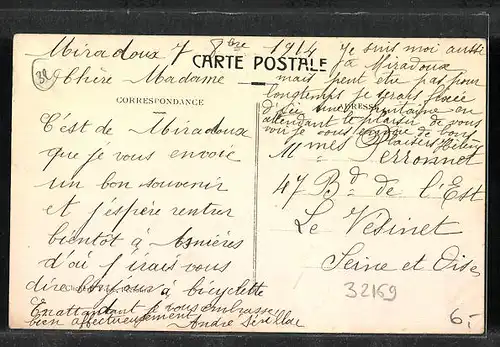 Miradoux 7 8bre 1914
32
CARTE POSTALE
Chère Madame
CORRESPONDANCE
C'est de Miradoux
que je vous envoie
un bon souvenir
et j'espère rentrer
bientôt à Asnières
d'où j'irais vous
dire bonjour à bicyclette
En attendant je vous embrasse
bien affectueusement
André
Je suis moi aussi
à Miradoux
mais peut être pas pour
longtemps je serais fixée
d'ici une quintaine en
attendant le plaisir de vous
voir je vous envoie de bons
baisers
ADRESSE
Mmes Perronnet
47 Bd de l'Est
Le Vesinet
Seine et Oise
32159
6.-